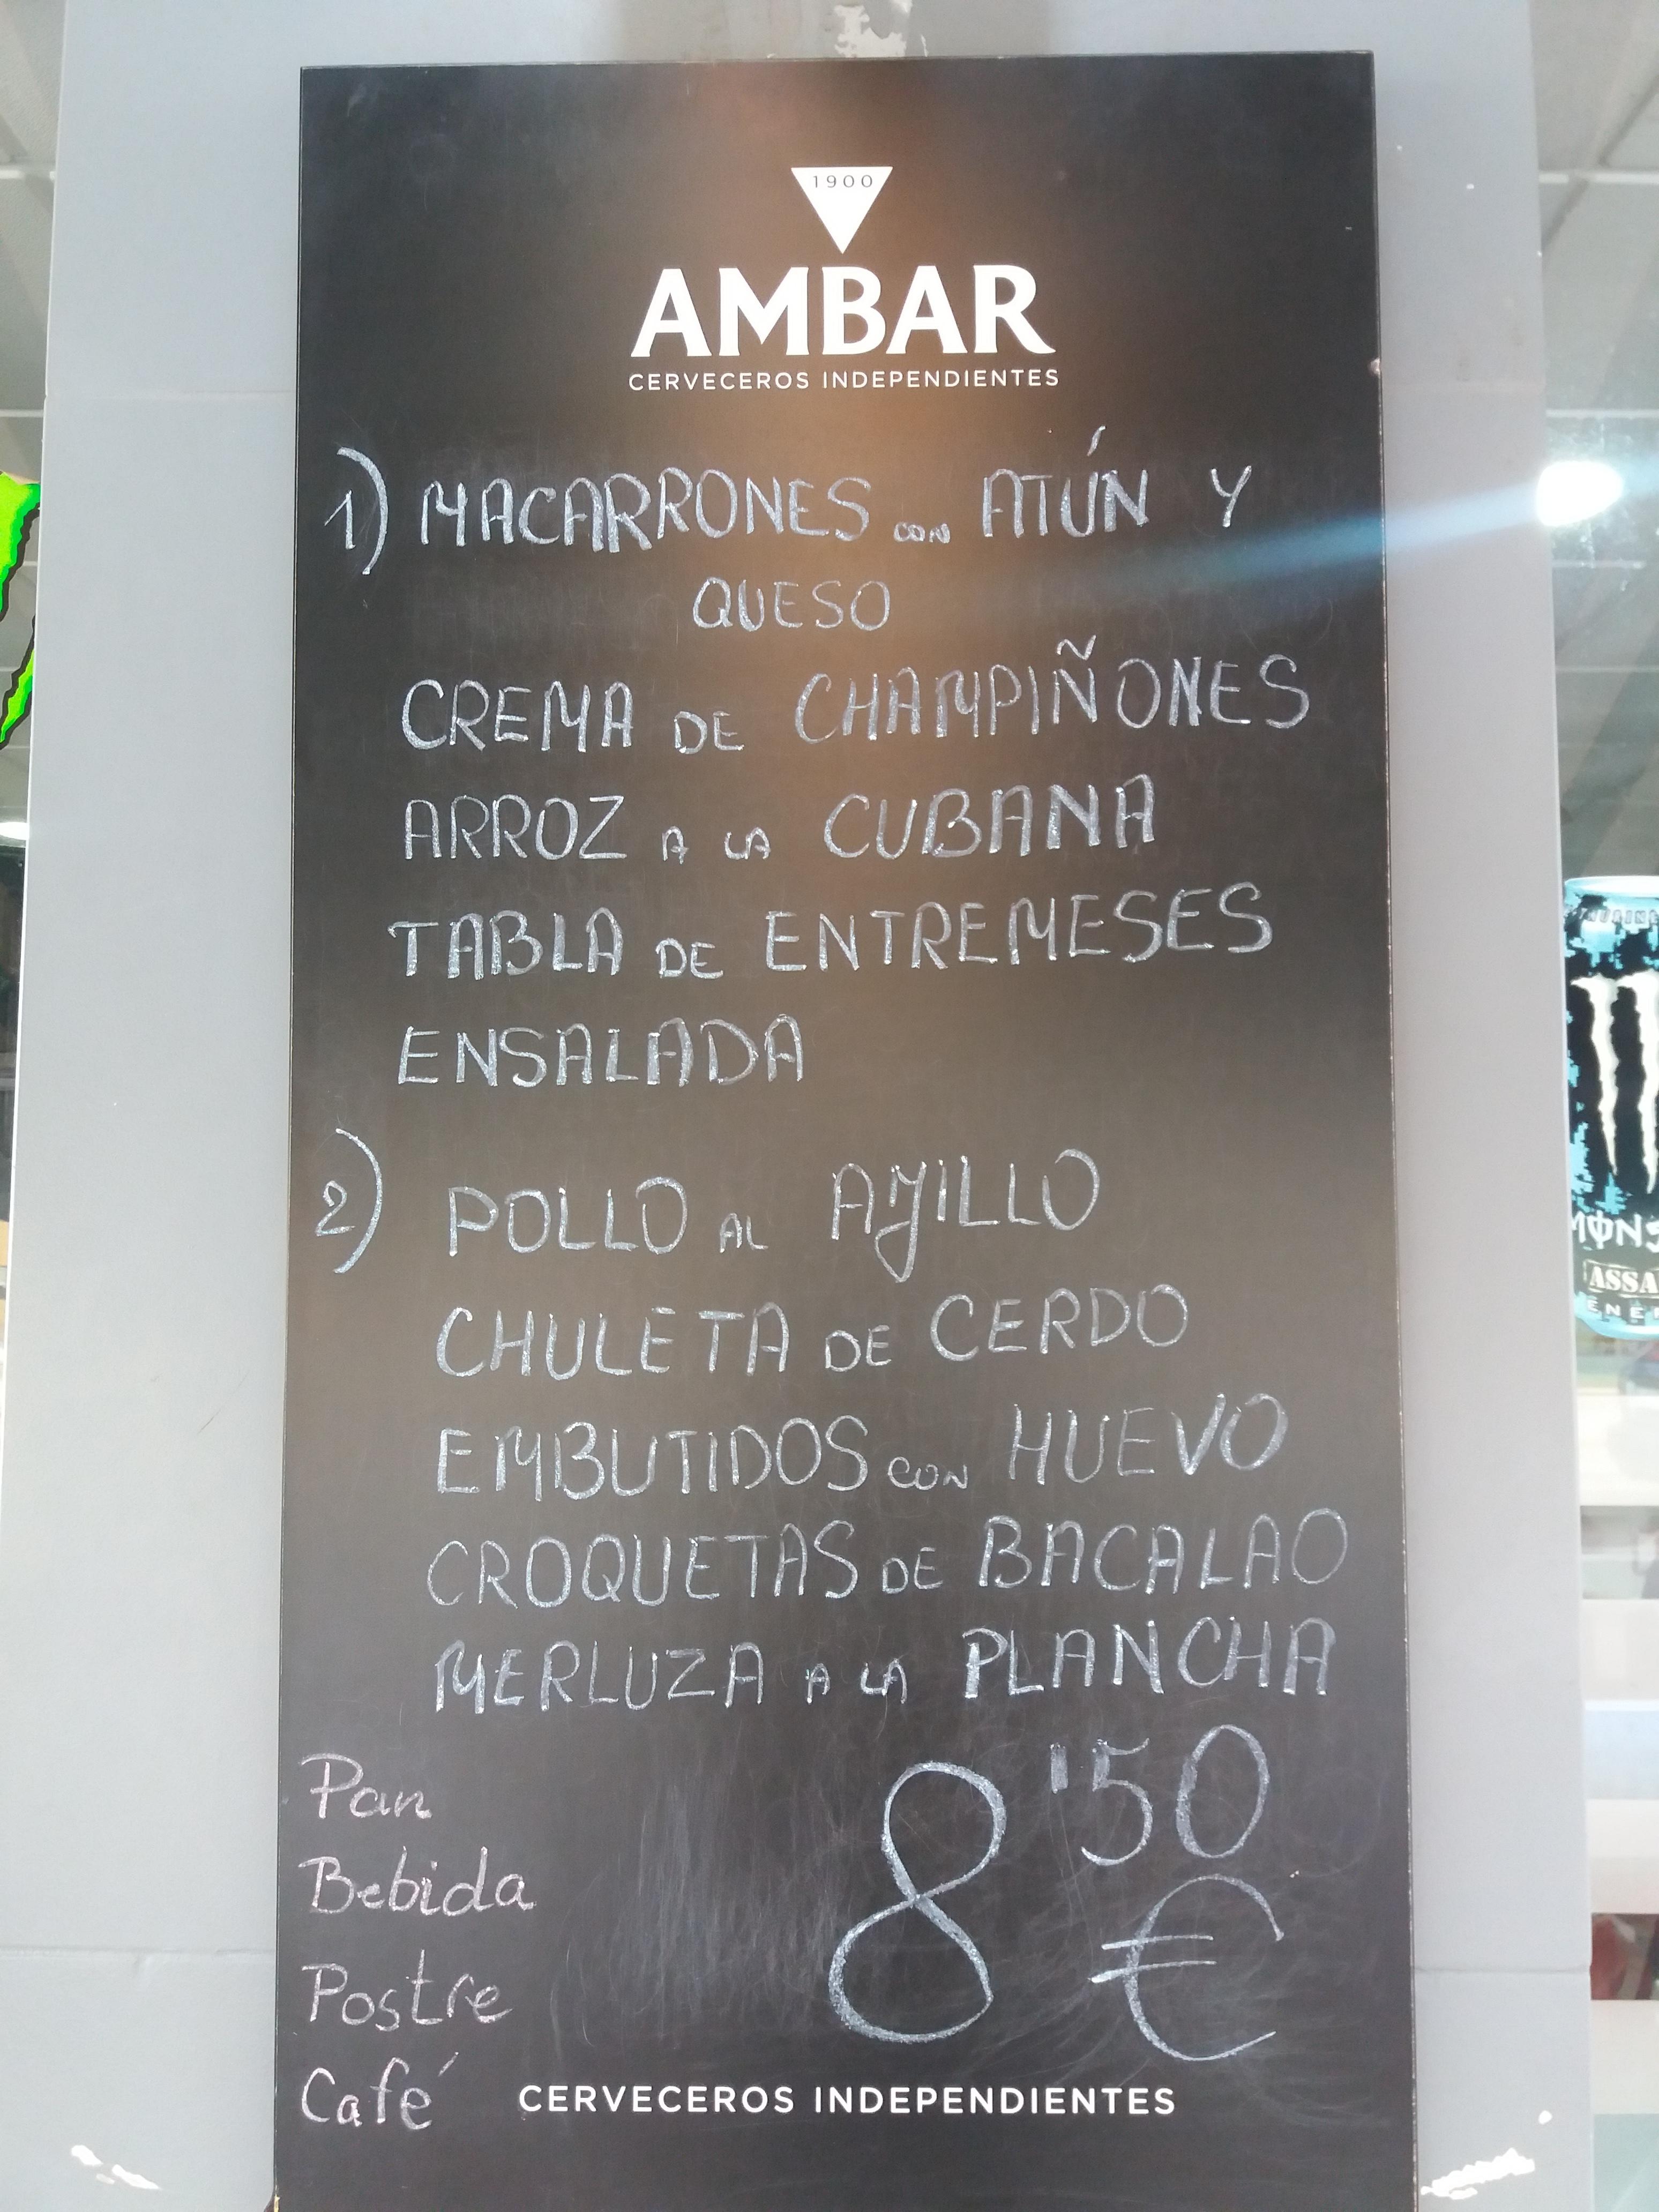 1900
AMBAR
CERVECEROS INDEPENDIENTES
1) MACARRONES CON ATÚN Y
QUESO
CREMA DE CHAMPIÑONES
ARROZ A LA CUBANA
TABLA DE ENTREMESES
ENSALADA
2) POLLO AL AJILLO
CHULETA DE CERDO
EMBUTIDOS CON HUEVO
CROQUETAS DE BACALAO
MERLUZA A LA PLANCHA
Pan
Bebida
Postre
Café
8'50
€
CERVECEROS INDEPENDIENTES